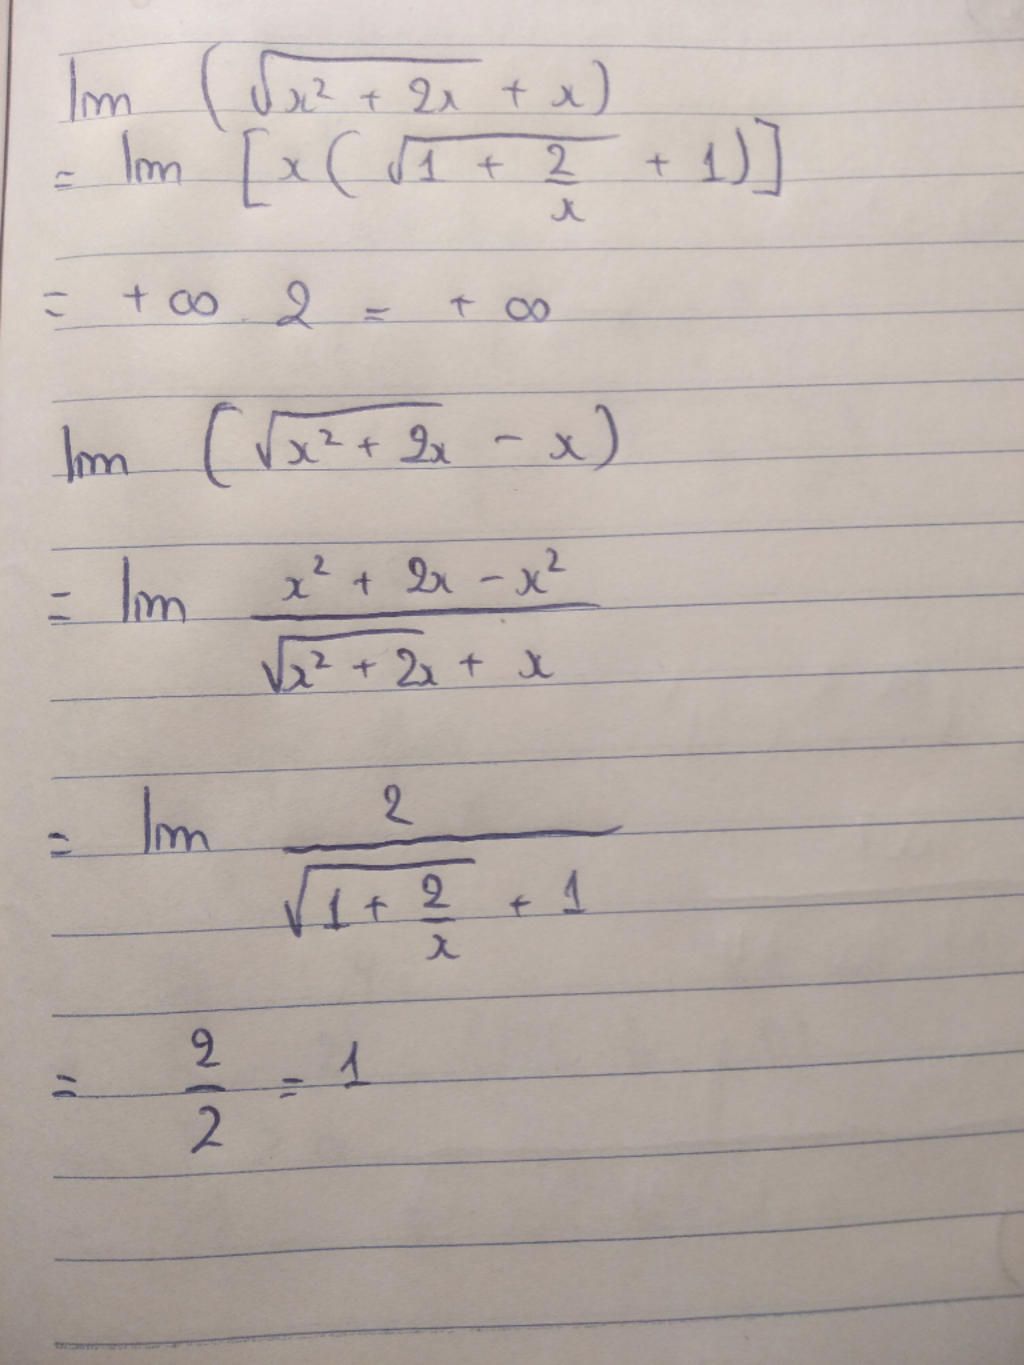 lim (√(x² + 2x) + x)
= lim [x(√(1 + 2/x) + 1)]
= +∞ . 2 = +∞
lim (√(x² + 2x) - x)
= lim (x² + 2x - x²)/(√(x² + 2x) + x)
= lim 2/(√(1 + 2/x) + 1)
= 2/2 = 1